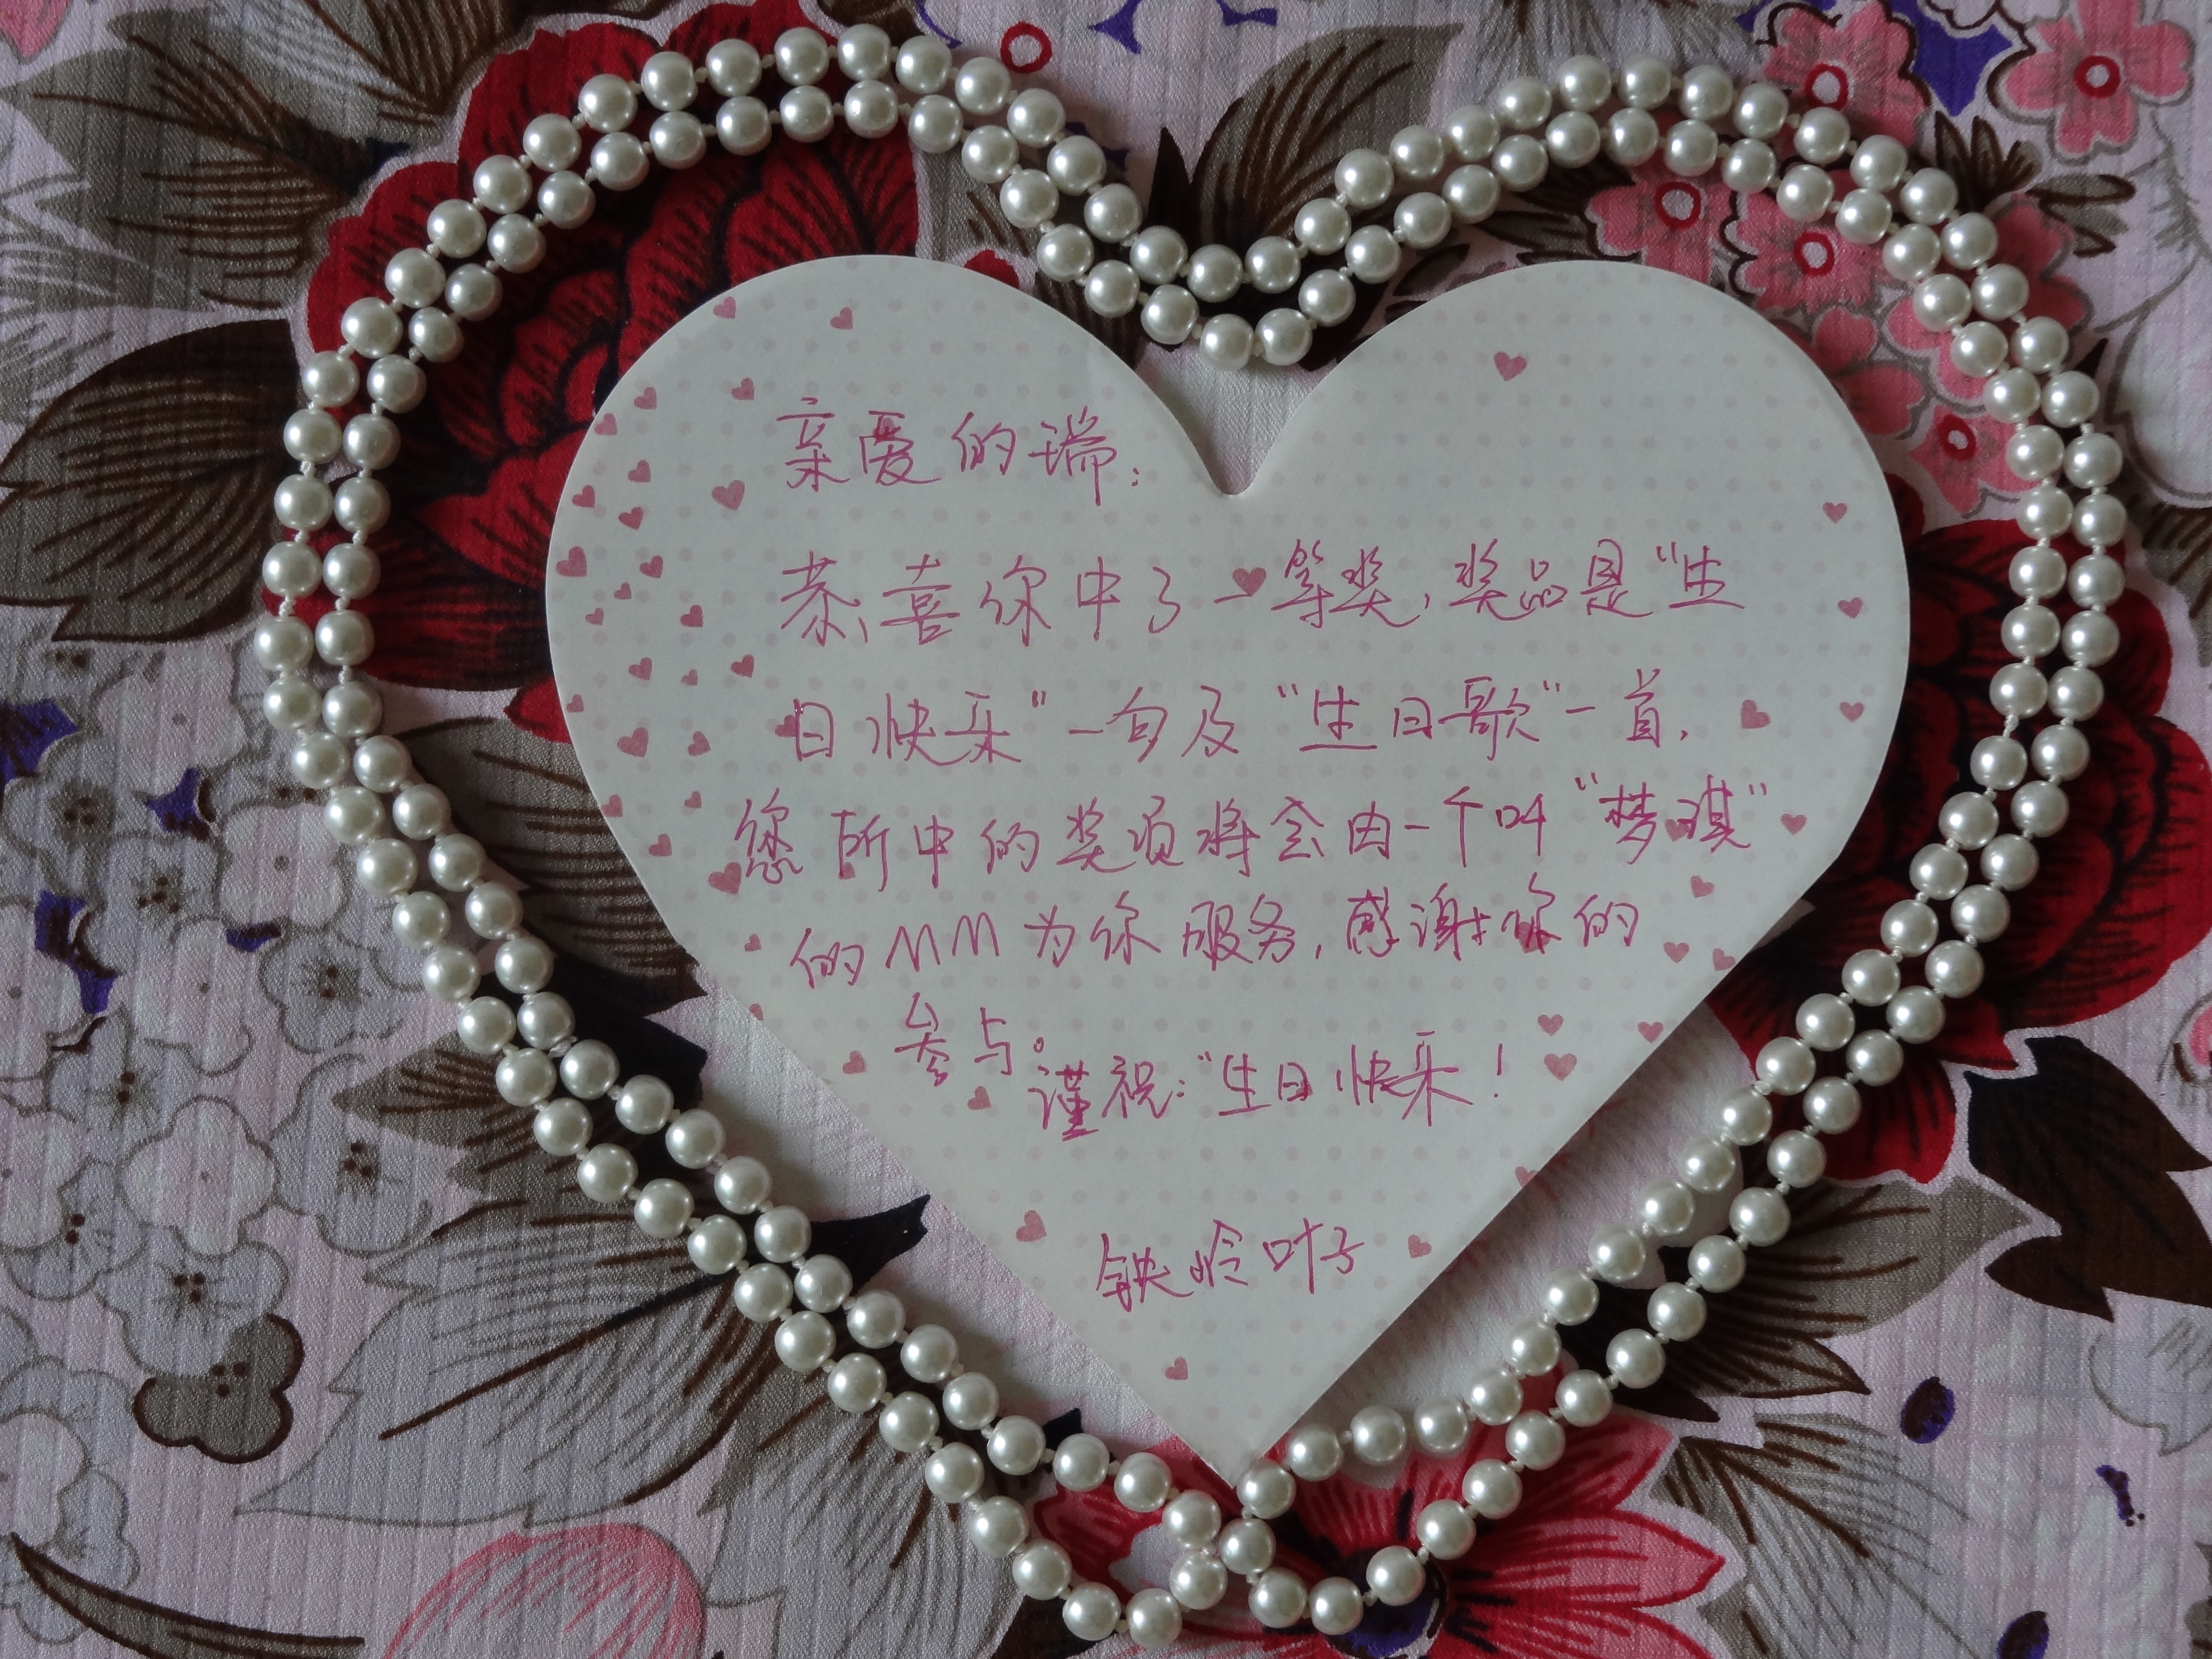 亲爱的瑞：
恭喜你中了一等奖，奖品是“生
日快乐”一句及“生日歌”一首，
您所中的奖项将会由一个叫“梦琪”
的MM为你服务，感谢你的
参与。
谨祝：“生日快乐！
铁岭叶子